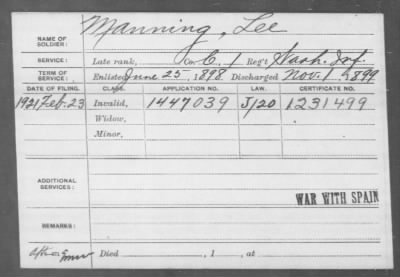 NAME OF SOLDIER: Manning, Lee
SERVICE: Late rank, Co. C. 1 Reg't Wash. Inf.
TERM OF SERVICE: Enlisted June 25, 1898 Discharged Nov. 1, 1899
DATE OF FILING. CLASS. APPLICATION NO. LAW. CERTIFICATE NO.
1921 Feb. 23 Invalid, 1447039 J/20 1231499
Widow,
Minor,
ADDITIONAL SERVICES:
WAR WITH SPAIN
REMARKS:
Died , 1 , at